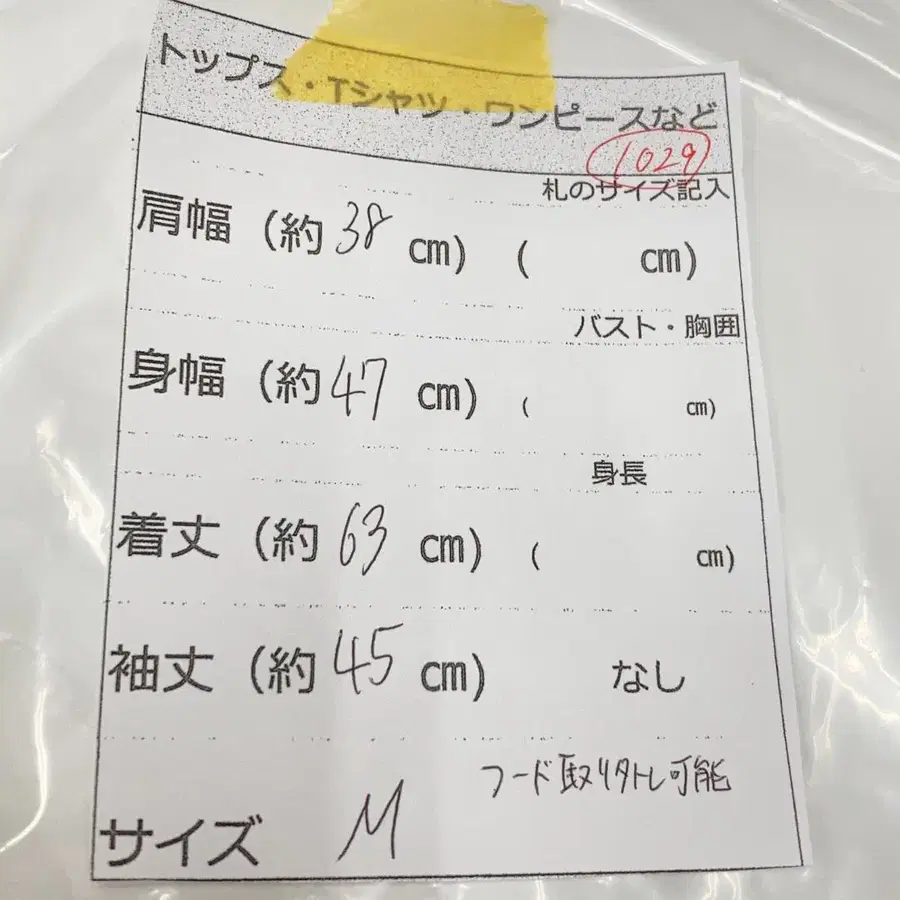 トップス・Tシャツ・ワンピースなど
1029
札のサイズ記入
肩幅 (約 38 cm) ( cm)
バスト・胸囲
身幅 (約 47 cm) ( cm)
身長
着丈 (約 63 cm) ( cm)
袖丈 (約 45 cm) なし
フード取り外し可能
サイズ M